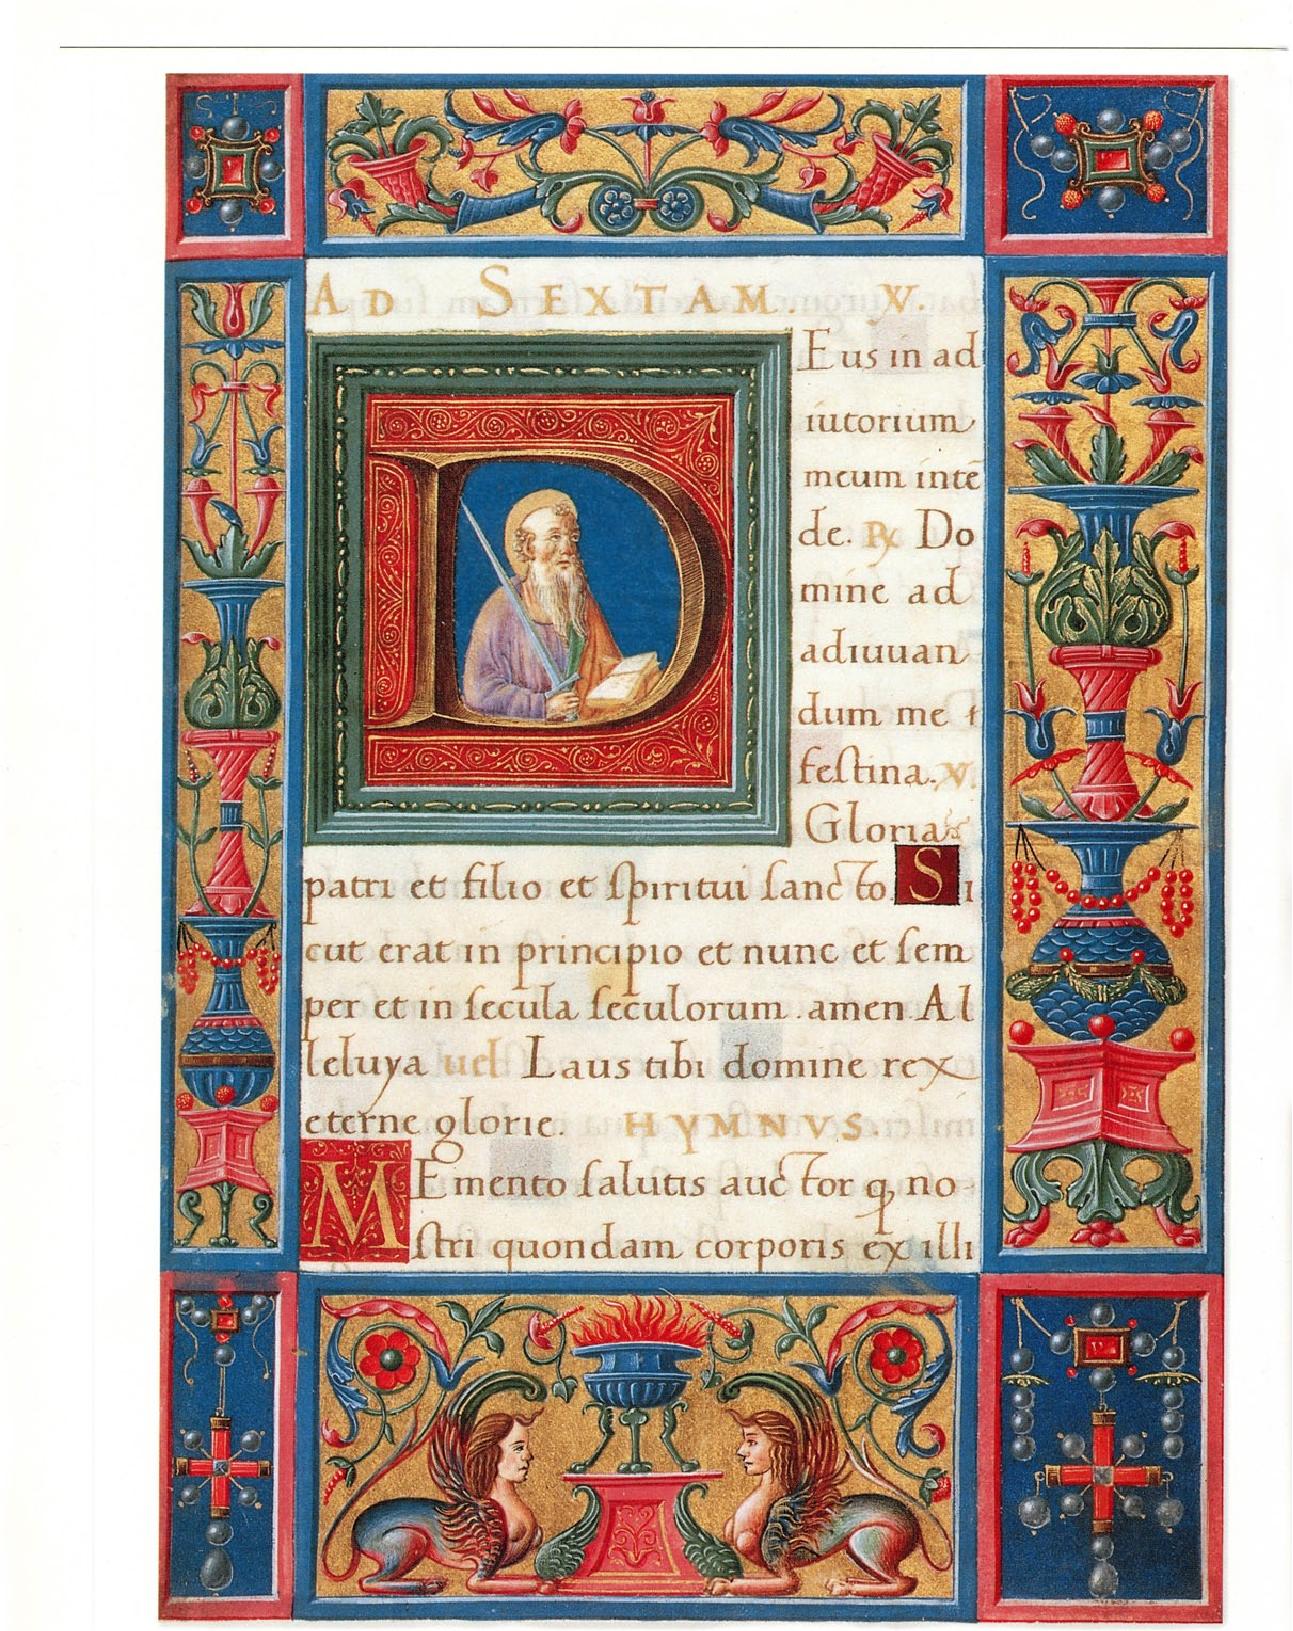 AD SEXTAM. V.
DEus in ad
iutorium
meumintē
de. ℟ Do
mine ad
adiuuan
dum me ⁊
feſtina. V.
Gloria
patri et filio et ſpiritui ſancto. Si
cut erat in principio et nunc et ſem
per et in ſecula ſeculorum. amen Al
leluya uel Laus tibi domine rex
eterne glorie. HYMNVS.
MEmento ſalutis auctor ꝙ no
ſtri quondam corporis ex illi